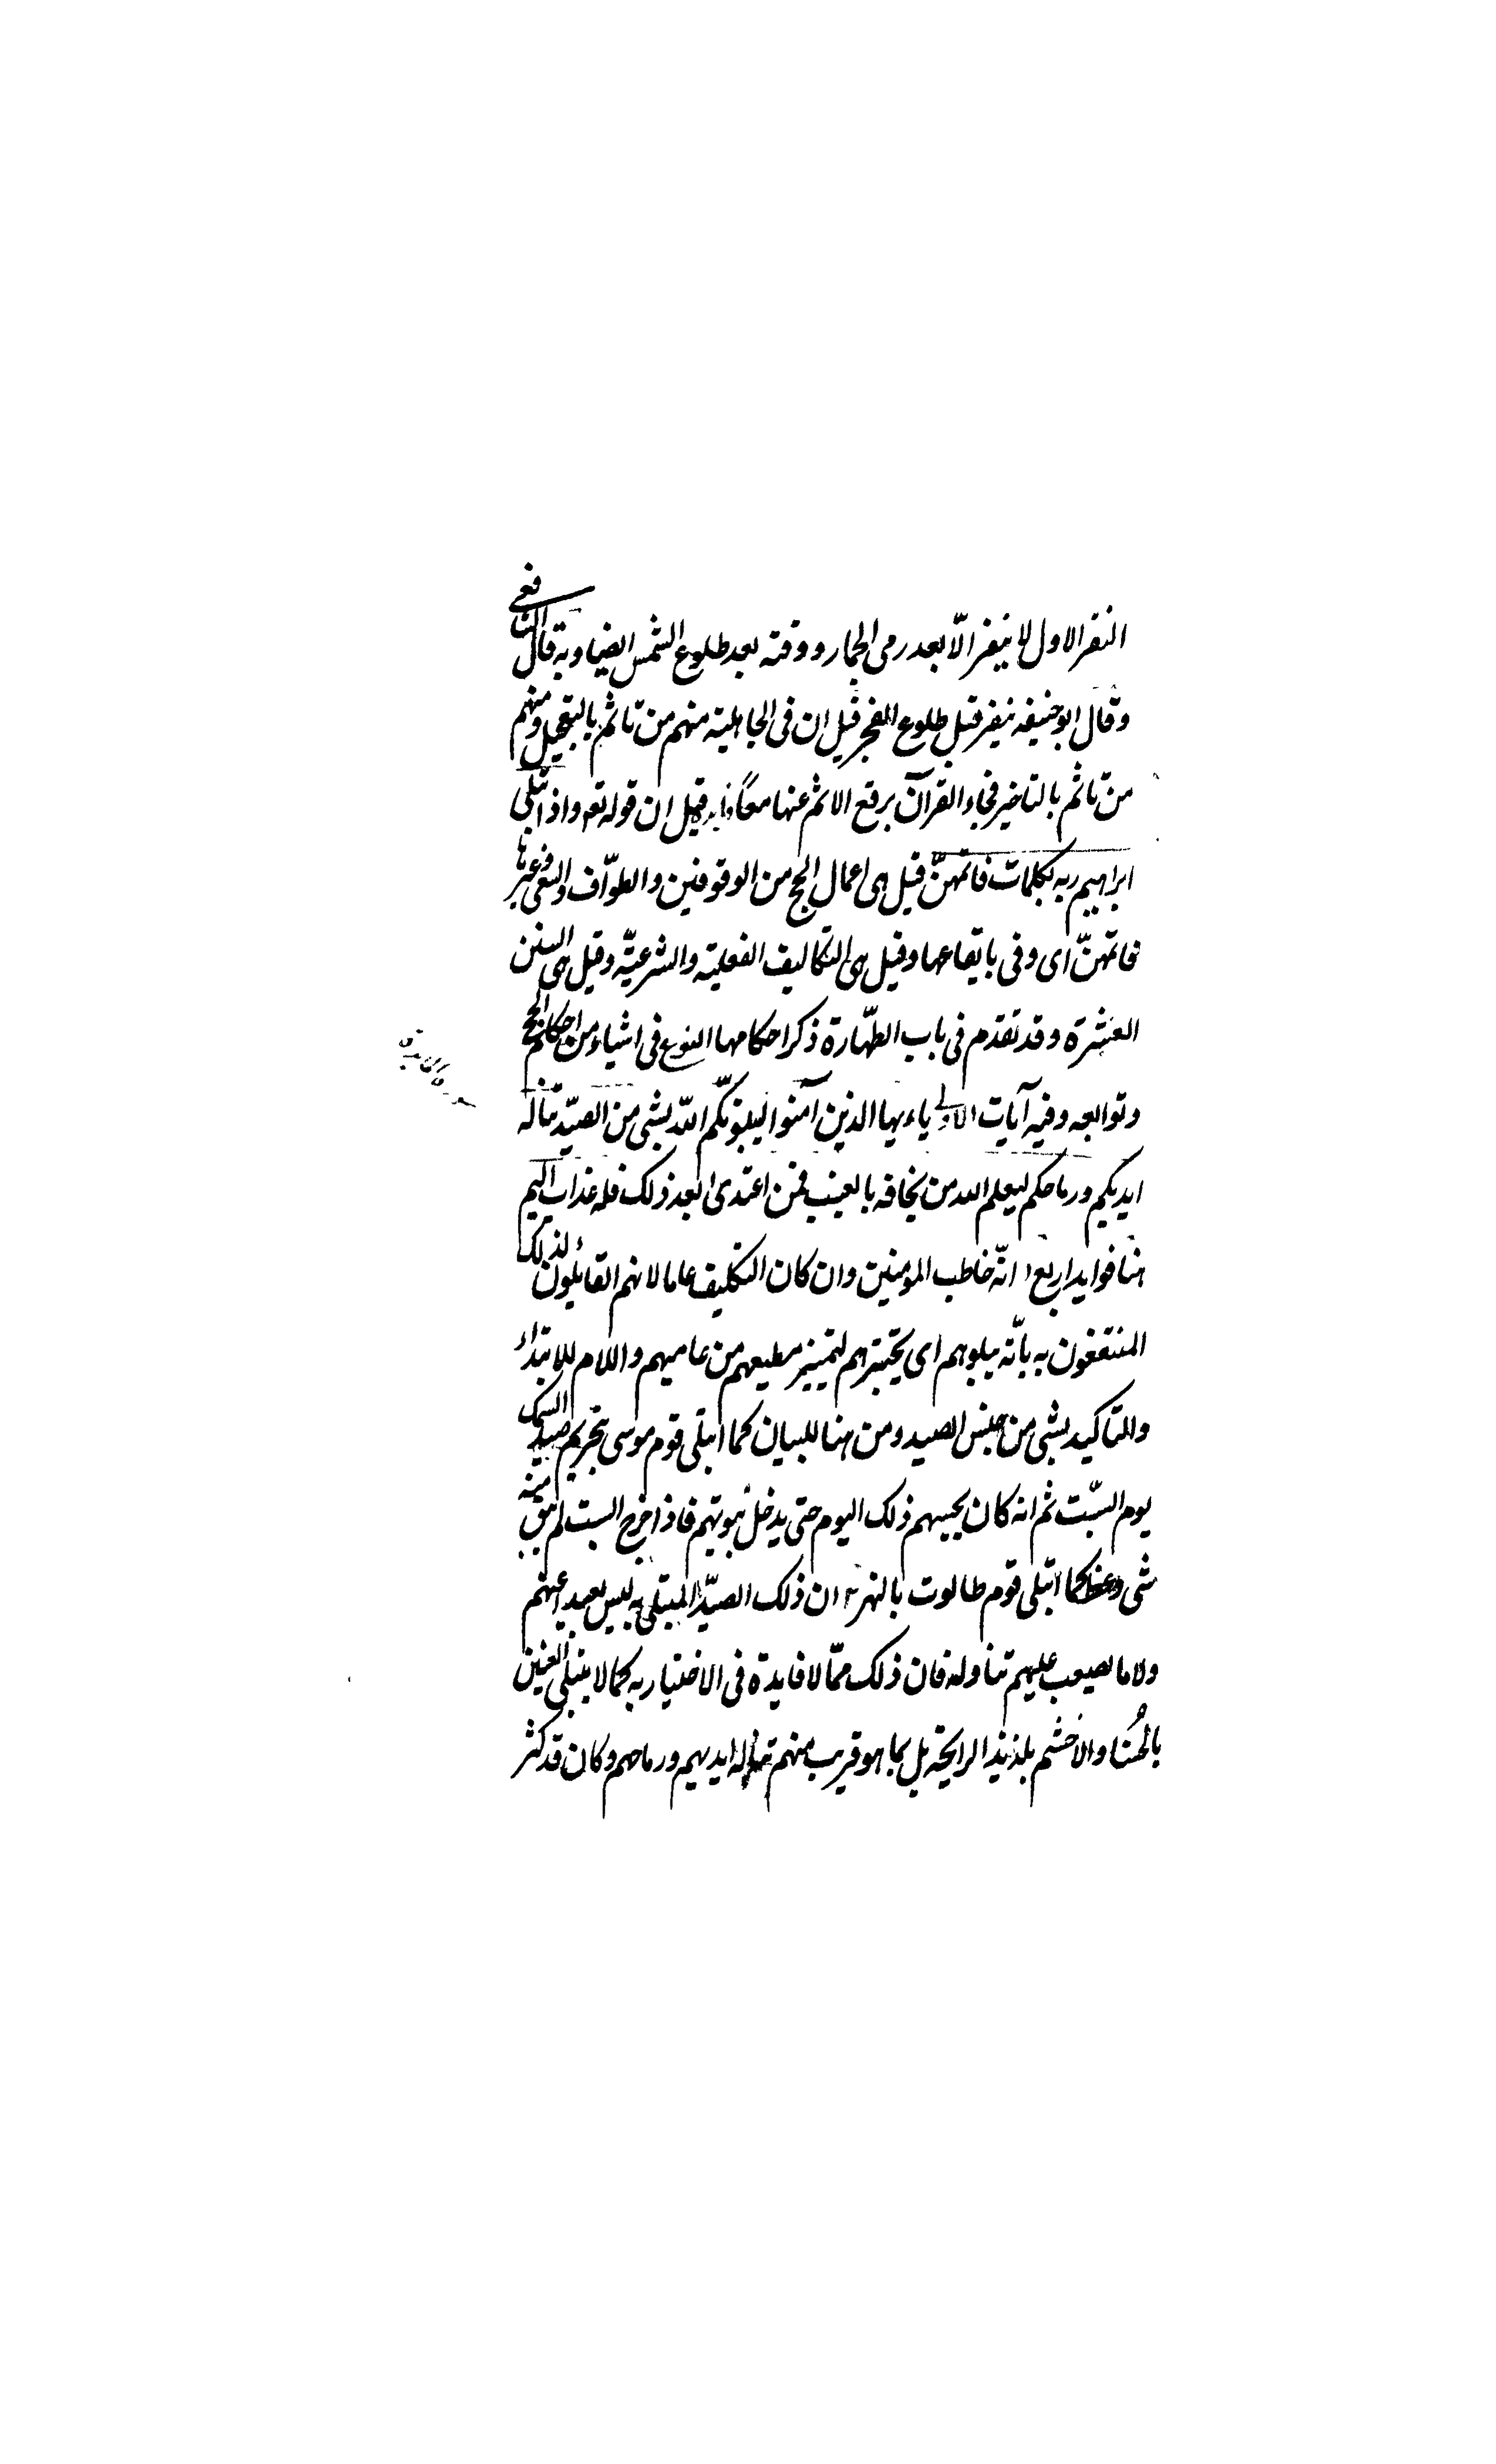 النفر الاول لا ينفر الّا بعد رمى الجمار ووقته بعد طلوع الشمس ايضا وبه قال الشافعى
وقال ابو حنيفه ينفر قبل طلوع الفجر قيل ان فى الجاهلية منهم من تاثم بالتعجيل ومنهم
من تاثم بالتاخير فجاء القرآن برفع الاثم عنها معًا قيل ان قوله تع واذ ابتلى
ابراهيم ربه بكلمات فاتمهنّ قيل هى اعمال الحج من الوقوفين والطوّاف والسعى وغيرها
فاتمهنّ اى وفى بايقاعها وقيل هى التكاليف الفعلية والشرعيّة وقيل هى السنن
العشرة وقد تقدم فى باب الطّهارة ذكر احكامها النوع فى اشياء من احكام الحج
وتوابعه وفيه آيات الاولى ياءيها الذين آمنوا ليبلونّكم اللّه بشى من الصيّد تناله
ايديكم ورماحكم ليعلم الله من يخافه بالغيب فمن اعتدى بعد ذلك فله عذاب اليم
هنا فوايد اربع ا انّه خاطب المؤمنين وان كان التكليف عاما لانهم القايلون لذلك
المنتفعون به بأنّه يبلوهم اى يختبرهم لتمييز مطيعهم من عاصيهم واللام للابتداء
والتاكيد بشى من جنس الصيد ومن هنا للبيان كما ابتلى قوم موسى بتحريم صيد السمك
يوم السّبت ثم انه كان يجيبهم ذلك اليوم حتى يدخل بيوتهم فاذا خرج السبت لم يبق منه
شى وكما ابتلى قوم طالوت بالنهر ٢ ان ذلك الصيّد المبتلى به ليس بعيد اعنهم
ولا ما يصعب عليهم تناوله فان ذلك ممّا لا فايدة فى الاختيار به كما لا يبتلى العنين
بالحُسنا والأخشم بلذيذ الرايحة بل بما هو قريب منهم تناله ايديهم ورماحهم وكان قد كثر